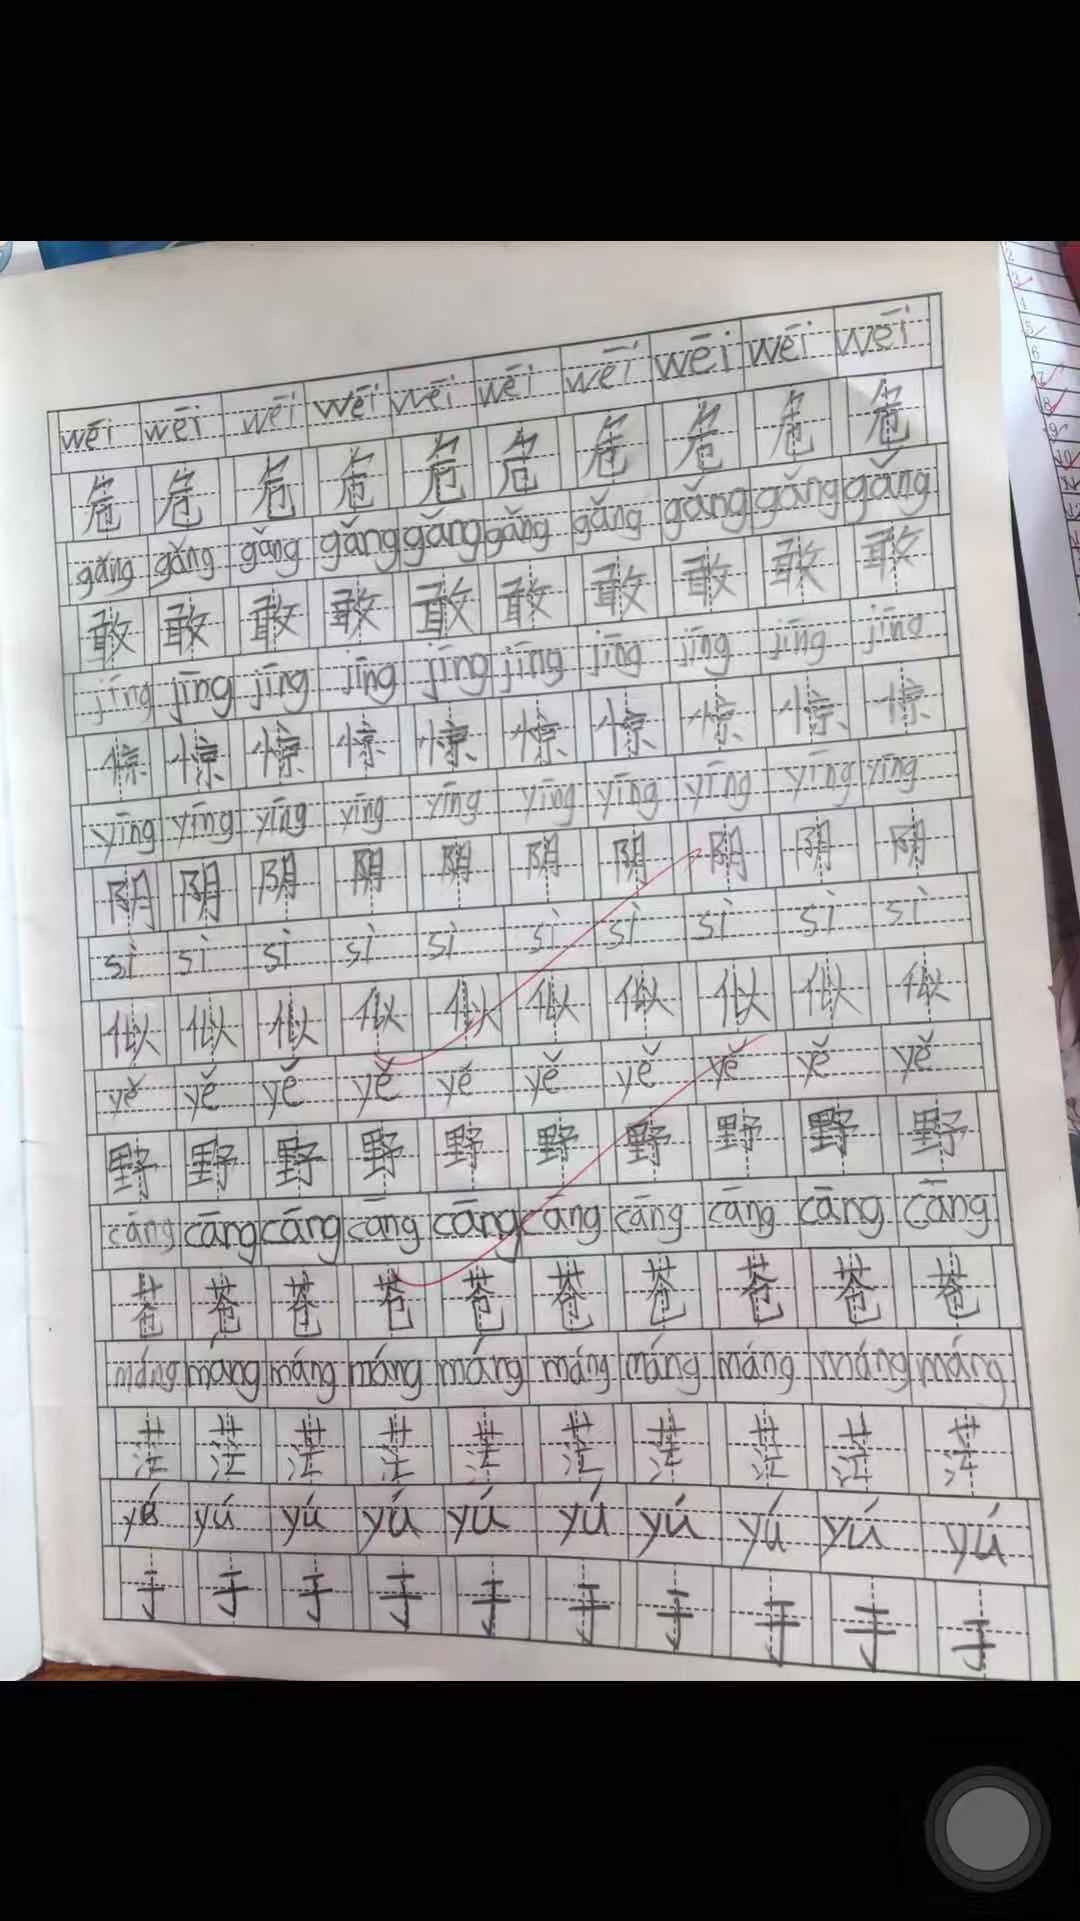 wēi wēi wēi wēi wēi wēi wēi wēi wēi wēi
危 危 危 危 危 危 危 危 危 危
gǎng gǎng gǎng gǎng gǎng gǎng gǎng gǎng gǎng gǎng
敢 敢 敢 敢 敢 敢 敢 敢 敢 敢
jīng jīng jīng jīng jīng jīng jīng jīng jīng jīng
惊 惊 惊 惊 惊 惊 惊 惊 惊 惊
yīng yīng yīng yīng yīng yīng yīng yīng yīng yīng
阴 阴 阴 阴 阴 阴 阴 阴 阴 阴
sì sì sì sì sì sì sì sì sì sì
似 似 似 似 似 似 似 似 似 似
yě yě yě yě yě yě yě yě yě yě
野 野 野 野 野 野 野 野 野 野
cāng cāng cāng cāng cāng cāng cāng cāng cāng cāng
苍 苍 苍 苍 苍 苍 苍 苍 苍 苍
máng máng máng máng máng máng máng máng máng máng
茫 茫 茫 茫 茫 茫 茫 茫 茫 茫
yú yú yú yú yú yú yú yú yú yú
于 于 于 于 于 于 于 于 于 于